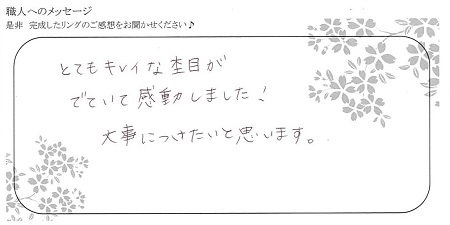 職人へのメッセージ
是非 完成したリングのご感想をお聞かせください♪
とてもキレイな杢目が
でていて感動しました!
大事につけたいと思います。